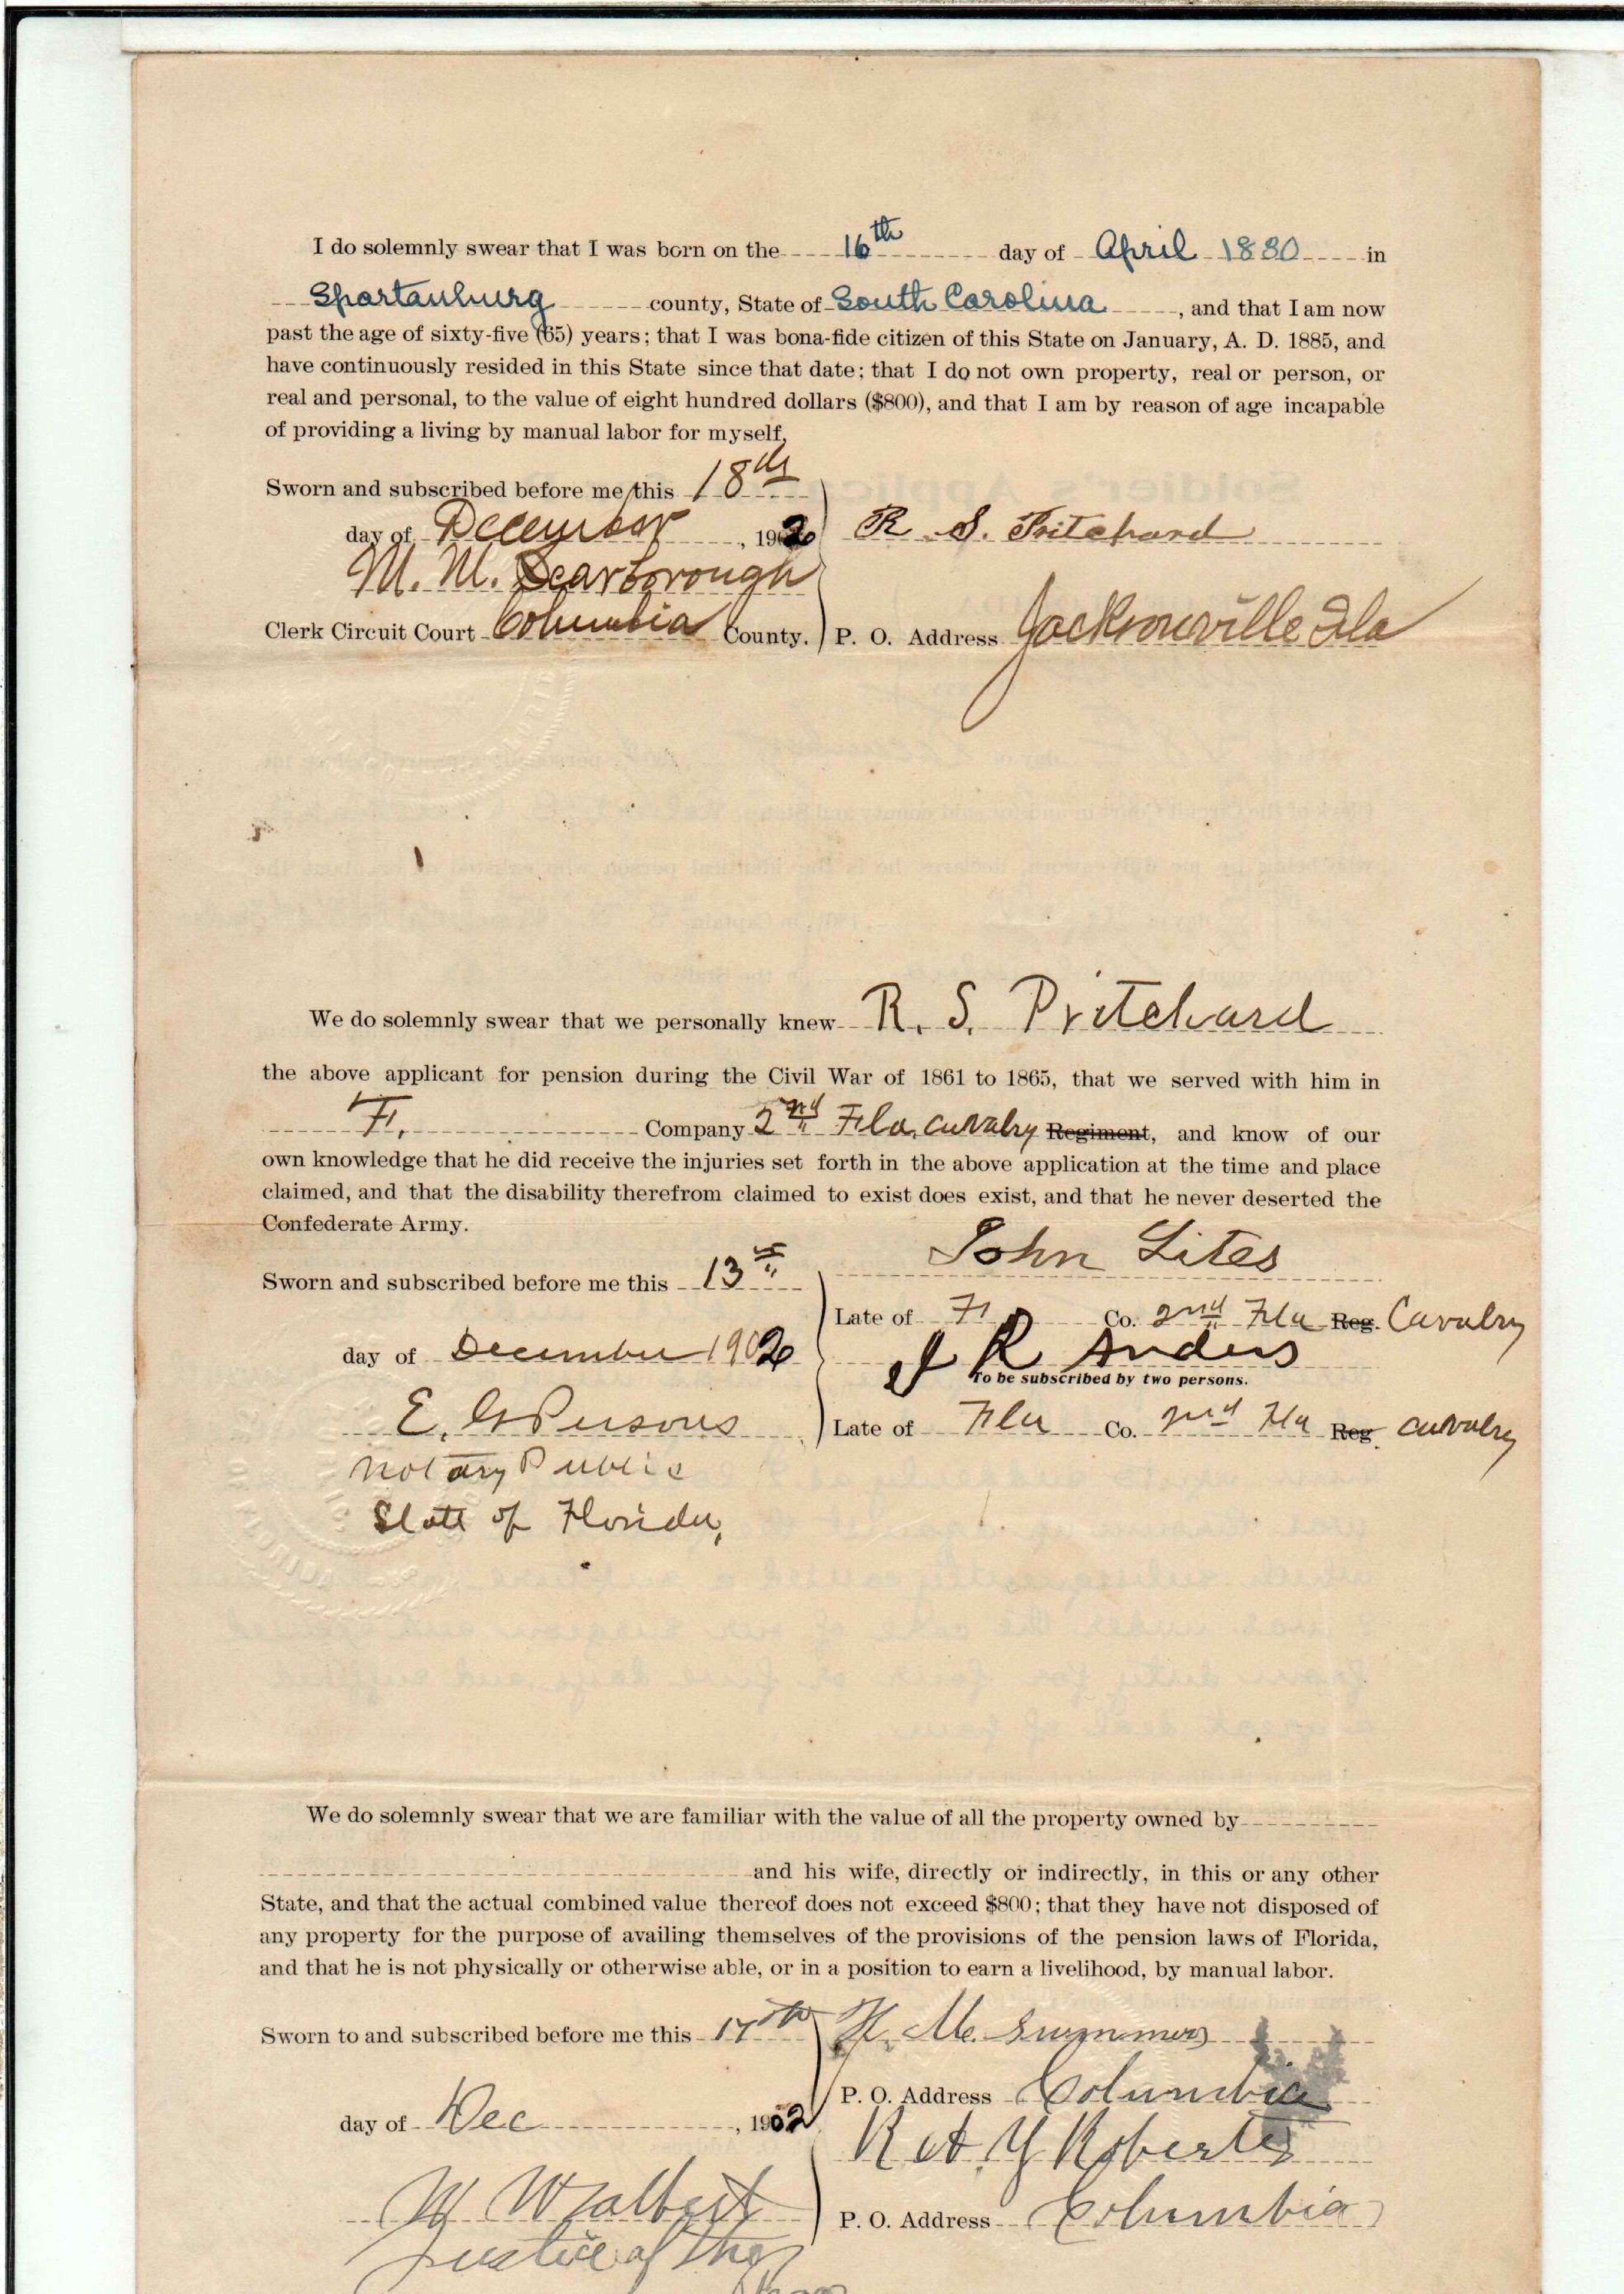 I do solemnly swear that I was born on the 16th day of April 1830 in
Spartanburg county, State of South Carolina, and that I am now
past the age of sixty-five (65) years; that I was bona-fide citizen of this State on January, A. D. 1885, and
have continuously resided in this State since that date; that I do not own property, real or person, or
real and personal, to the value of eight hundred dollars ($800), and that I am by reason of age incapable
of providing a living by manual labor for myself,
Sworn and subscribed before me this 18th
day of December, 1902 R. S. Pritchard
M. M. Scarborough
Clerk Circuit Court Columbia County. P. O. Address Jacksonville Fla
We do solemnly swear that we personally knew R. S. Pritchard
the above applicant for pension during the Civil War of 1861 to 1865, that we served with him in
F. Company 2nd Fla. Cavalry Regiment, and know of our
own knowledge that he did receive the injuries set forth in the above application at the time and place
claimed, and that the disability therefrom claimed to exist does exist, and that he never deserted the
Confederate Army.
John Lites
Sworn and subscribed before me this 13th
Late of F Co. 2nd Fla Reg. Cavalry
day of December 1902 J R Anders
To be subscribed by two persons.
E. G. Persons Late of Fla Co. 2nd Fla Reg. Cavalry
Notary Public
State of Florida,
We do solemnly swear that we are familiar with the value of all the property owned by
and his wife, directly or indirectly, in this or any other
State, and that the actual combined value thereof does not exceed $800; that they have not disposed of
any property for the purpose of availing themselves of the provisions of the pension laws of Florida,
and that he is not physically or otherwise able, or in a position to earn a livelihood, by manual labor.
Sworn to and subscribed before me this 17th H. M. Summers
P. O. Address Columbia
day of Dec, 1902
Roberts
P. O. Address Columbia
Justice of the